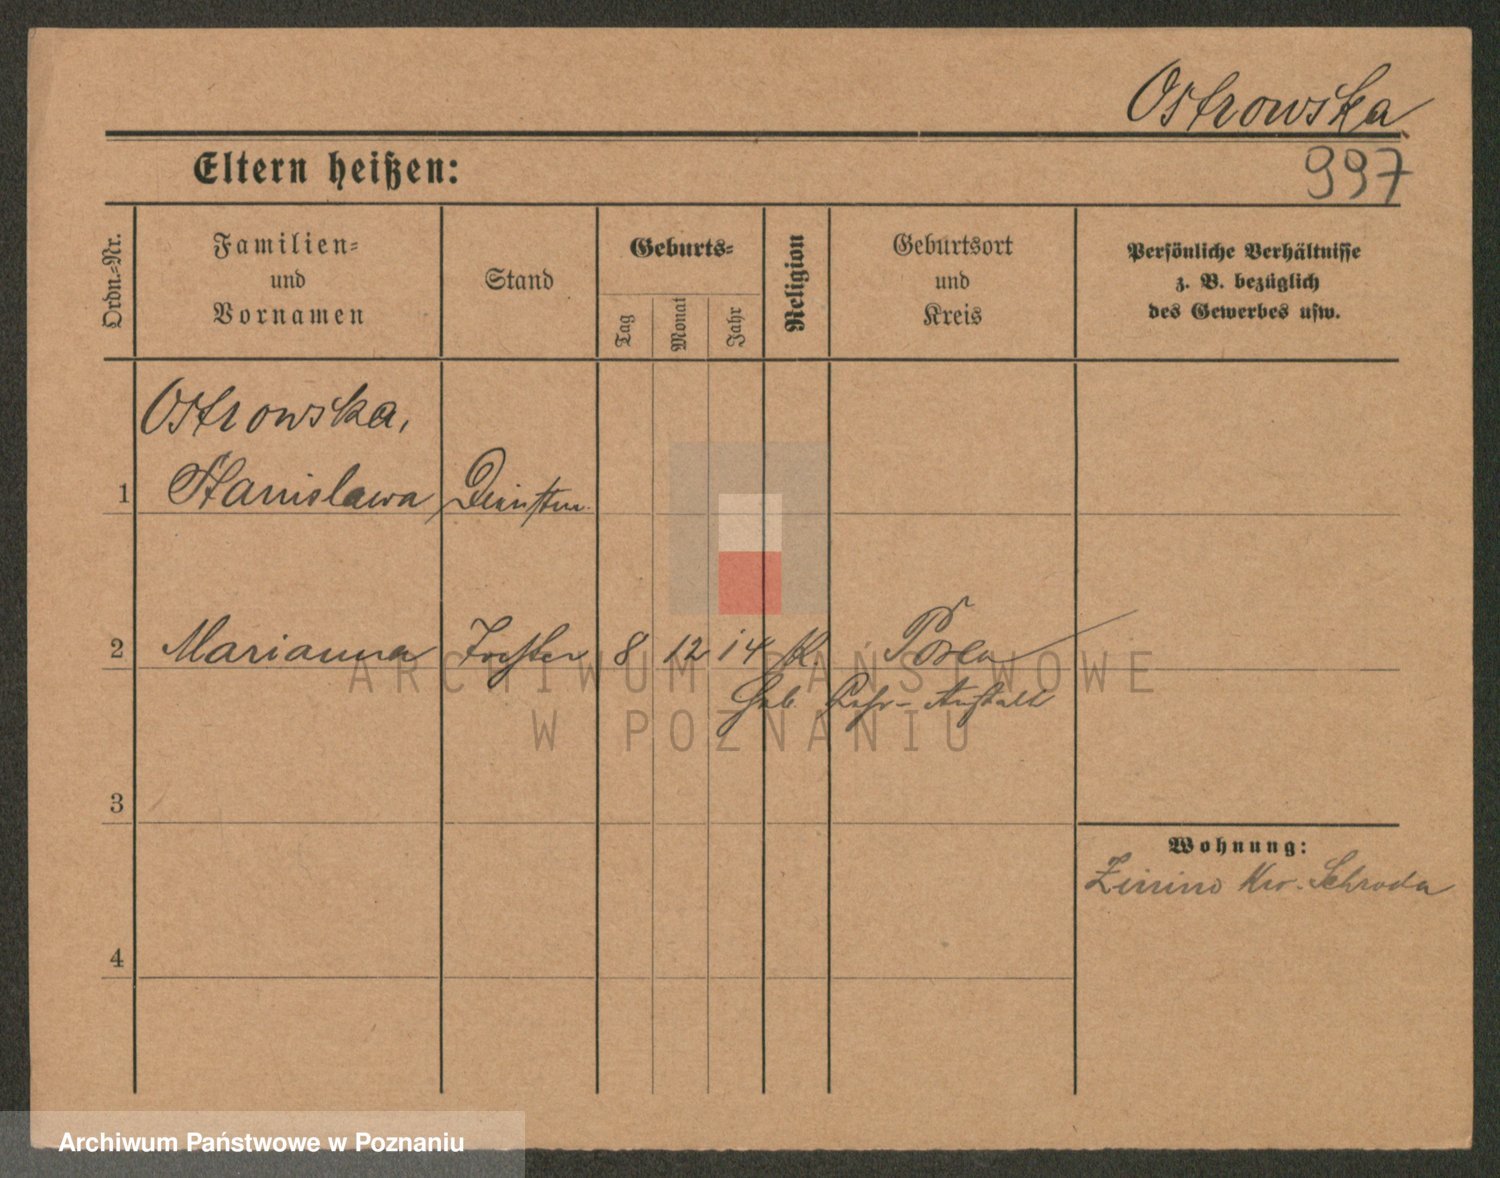 Ostrowska
997
Eltern heißen:
Ordn.-Nr.
Familien-
und
Vornamen
Stand
Geburts-
Tag
Monat
Jahr
Religion
Geburtsort
und
Kreis
Persönliche Verhältnisse
z. B. bezüglich
des Gewerbes usw.
Ostrowska,
1 Stanislawa
2 Marianna Tochter 8 12 14 K. Posen
Heb. Lehr-Anstalt
3
Wohnung:
Kr. Schroda
4
ARCHIWUM PAŃSTWOWE
W POZNANIU
Archiwum Państwowe w Poznaniu